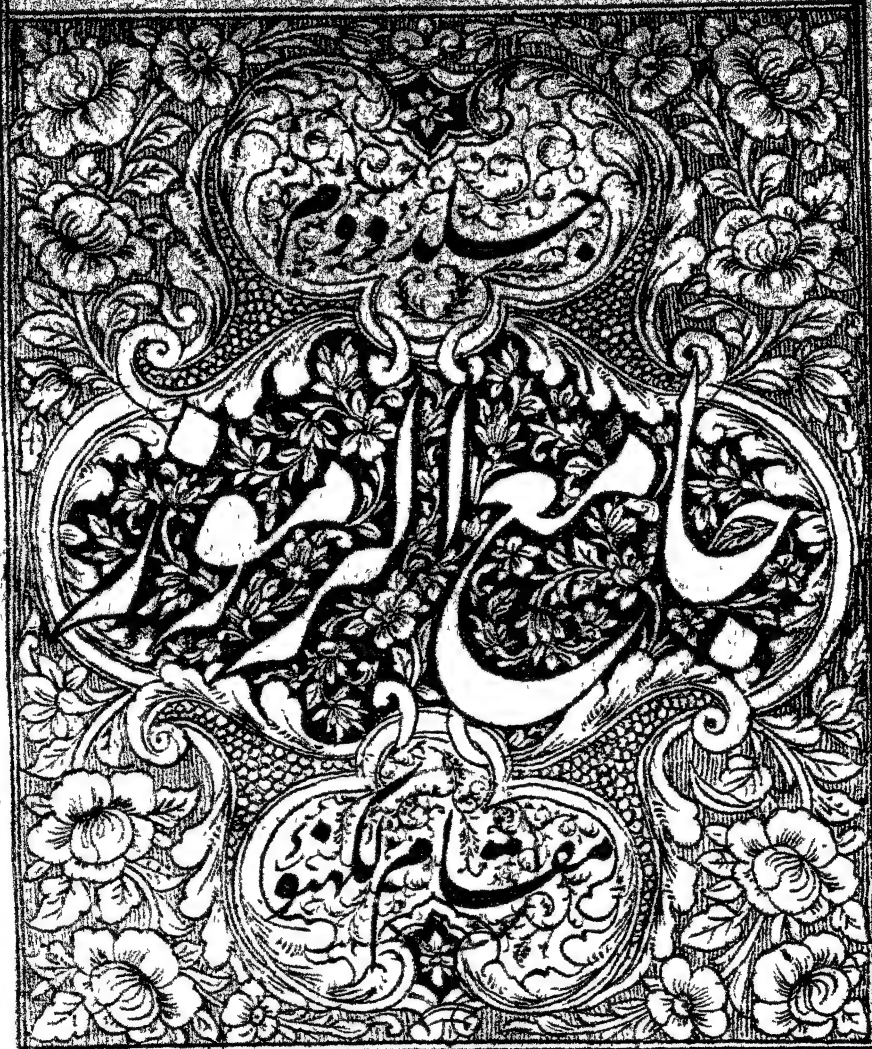 جلد دوم
جامع الرموز
مقام لکهنو